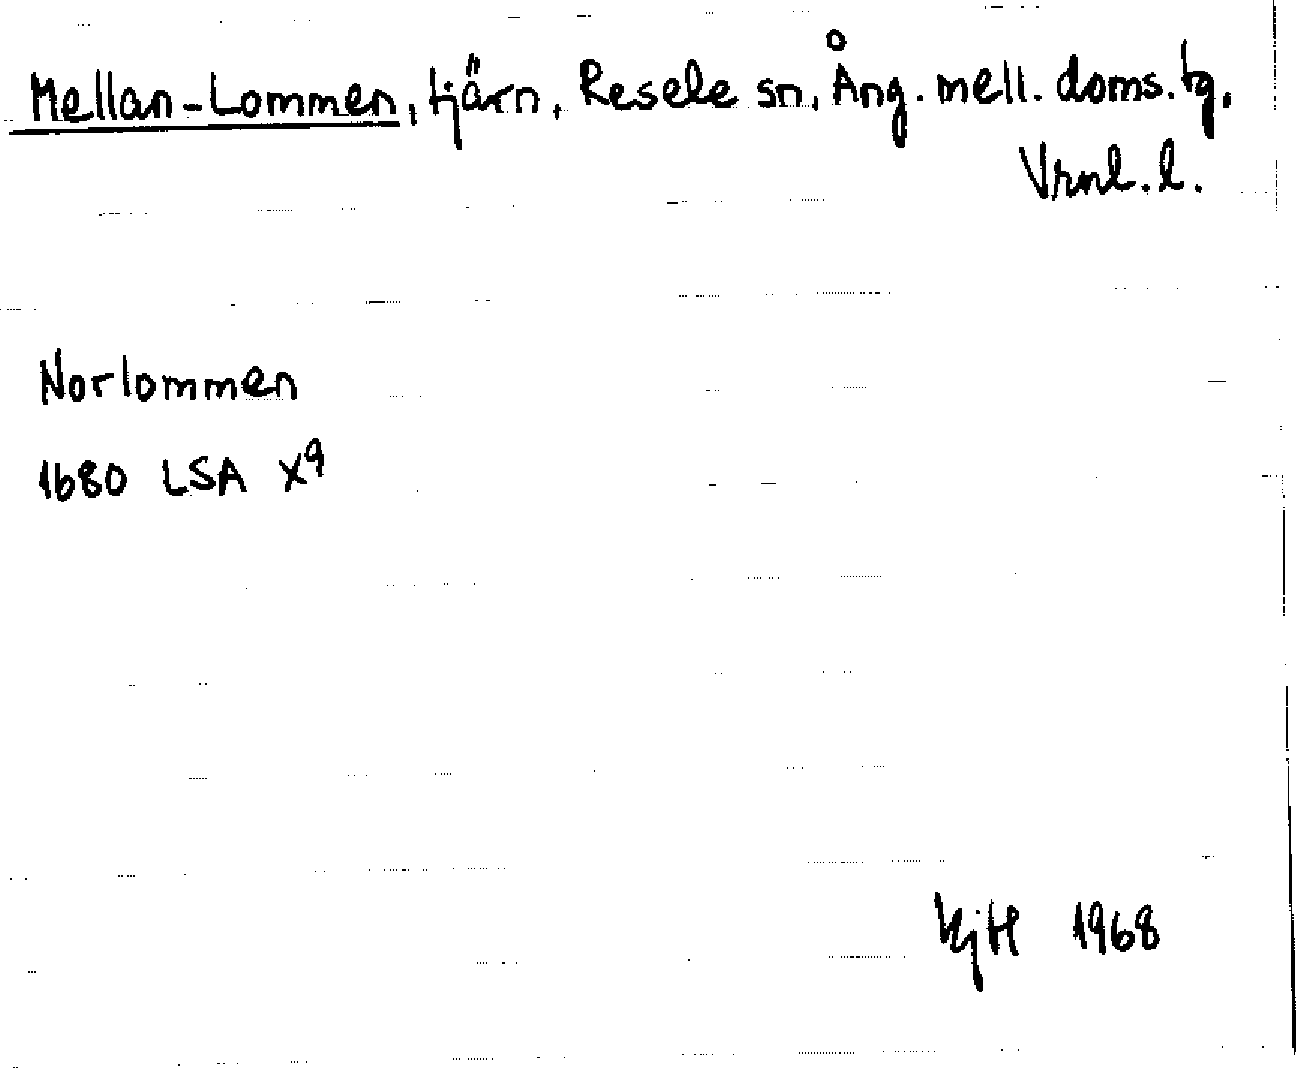 Mellan-Lommen, tjärn, Resele sn, Ång. mell. doms. tg,
Vrnl. l.
Norlommen
1680 LSA X⁹
KjH 1968